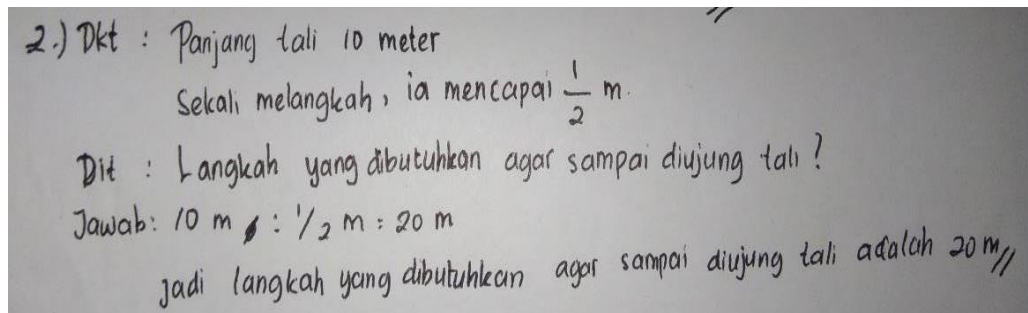 2.) Dkt : Panjang tali 10 meter
Sekali melangkah, ia mencapai 1/2 m.
Dit : Langkah yang dibutuhkan agar sampai diujung tali?
Jawab: 10 m : 1/2 m = 20 m
Jadi langkah yang dibutuhkan agar sampai diujung tali adalah 20 m //